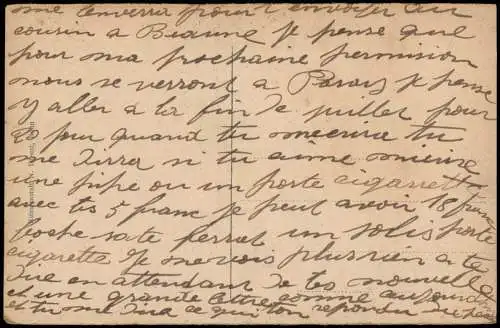 me enverra pour l'envoyer au
cousin a Beaune je pense que
pour ma prochaine permission
nous se verront a Paray je pense
y aller a la fin de juillet pour
quand tu mecrira tu
me dirra si tu aime mieux
une pipe ou un porte cigarette
avec tes 5 franc je peut avoir 18 franc
sa te ferrat un jolis porte
cigarette Je me vois plus rien a te
dire en attendant de tes nouvelle
et une grande lettre comme aujourd
et tu me dira ce qu'i ton repondu